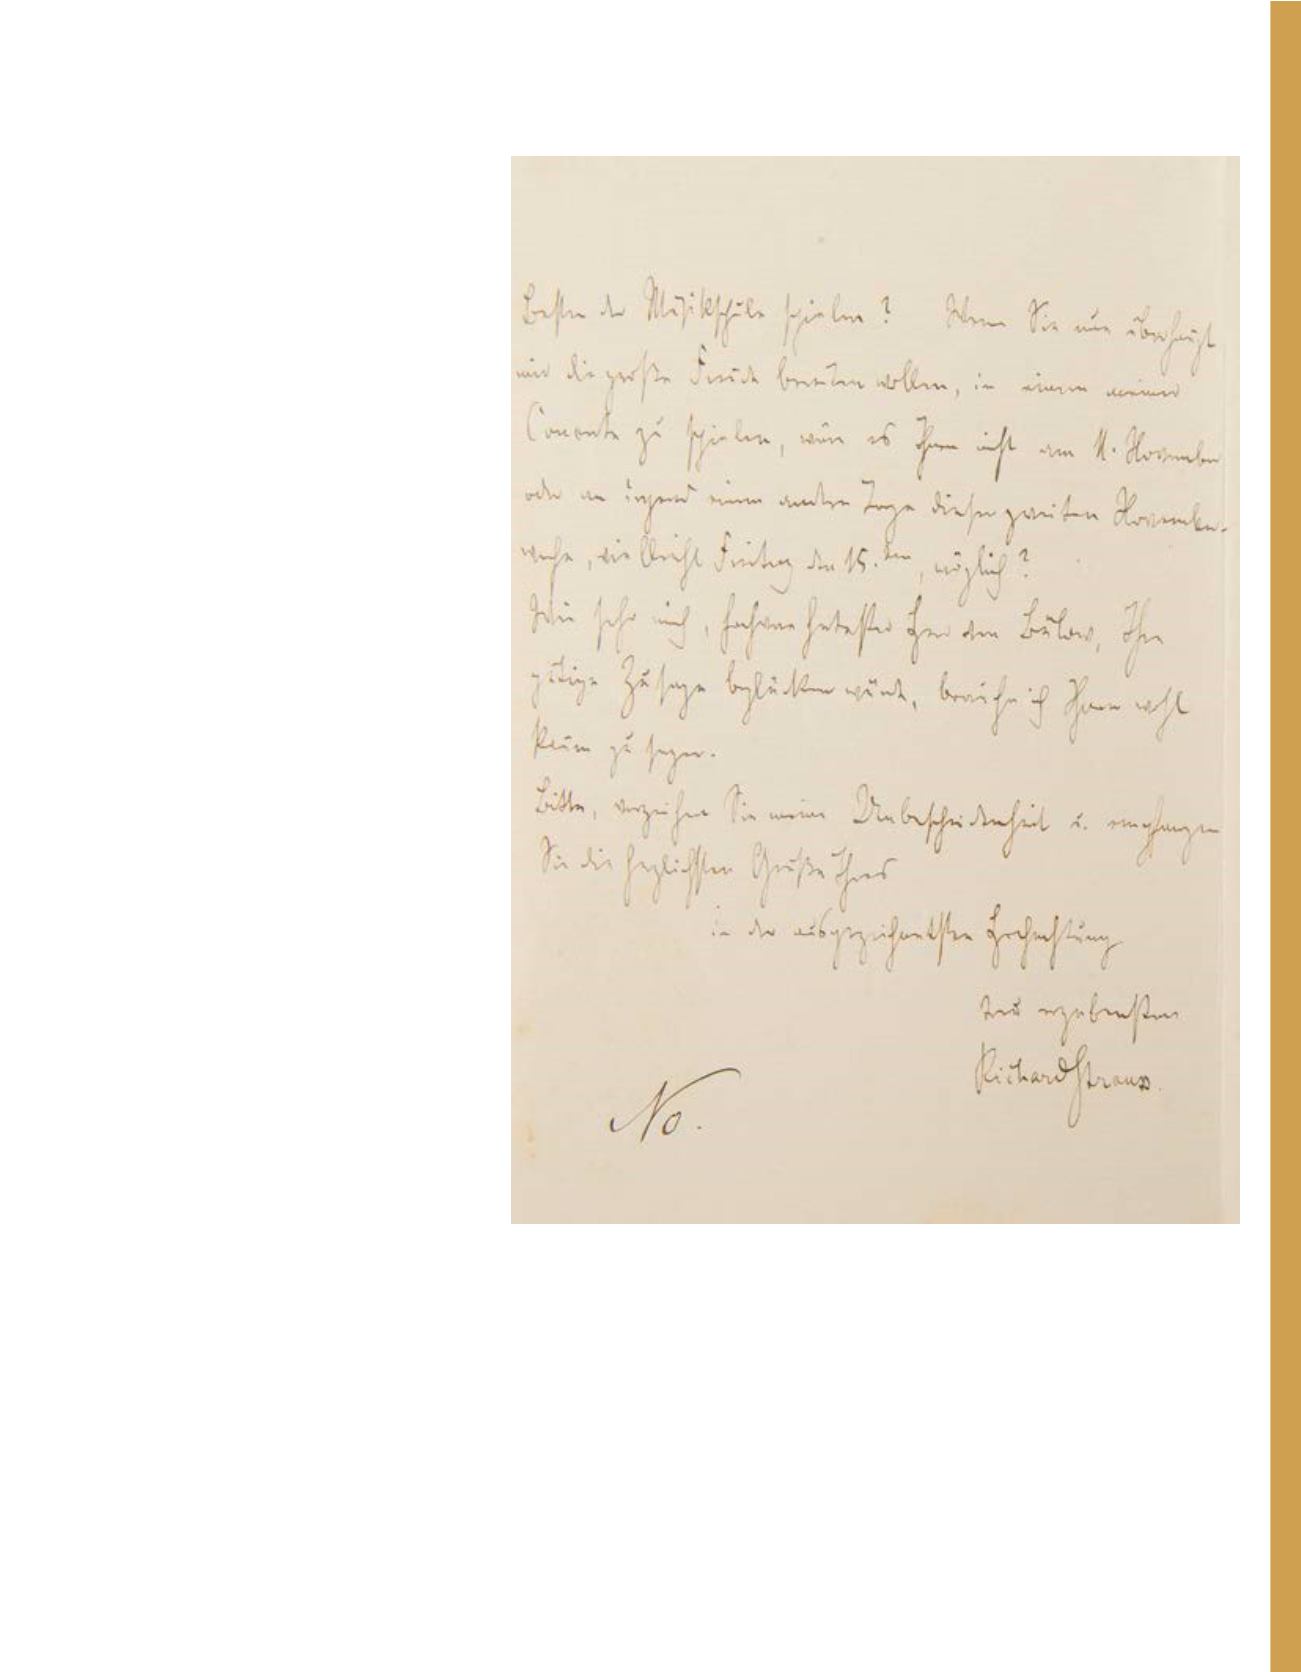 Besten der Musikschule spielen? Wenn Sie nur überhaupt
mir die große Freude bereiten wollen, in einem meiner
Concerte zu spielen, wär es Ihnen nicht am 11. November
oder an irgend einem andern Tage dieser zweiten November-
woche, vielleicht Freitag den 15.ten, möglich?
Wie sehr mich, hochverehrtester Herr von Bülow, Ihre
gütige Zusage beglücken würde, brauche ich Ihnen wohl
kaum zu sagen.
Bitte, verzeihen Sie meine Unbescheidenheit u. empfangen
Sie die herzlichsten Grüße Ihres
in der ausgezeichnetsten Hochachtung
treu ergebensten
Richard Strauss.
No.